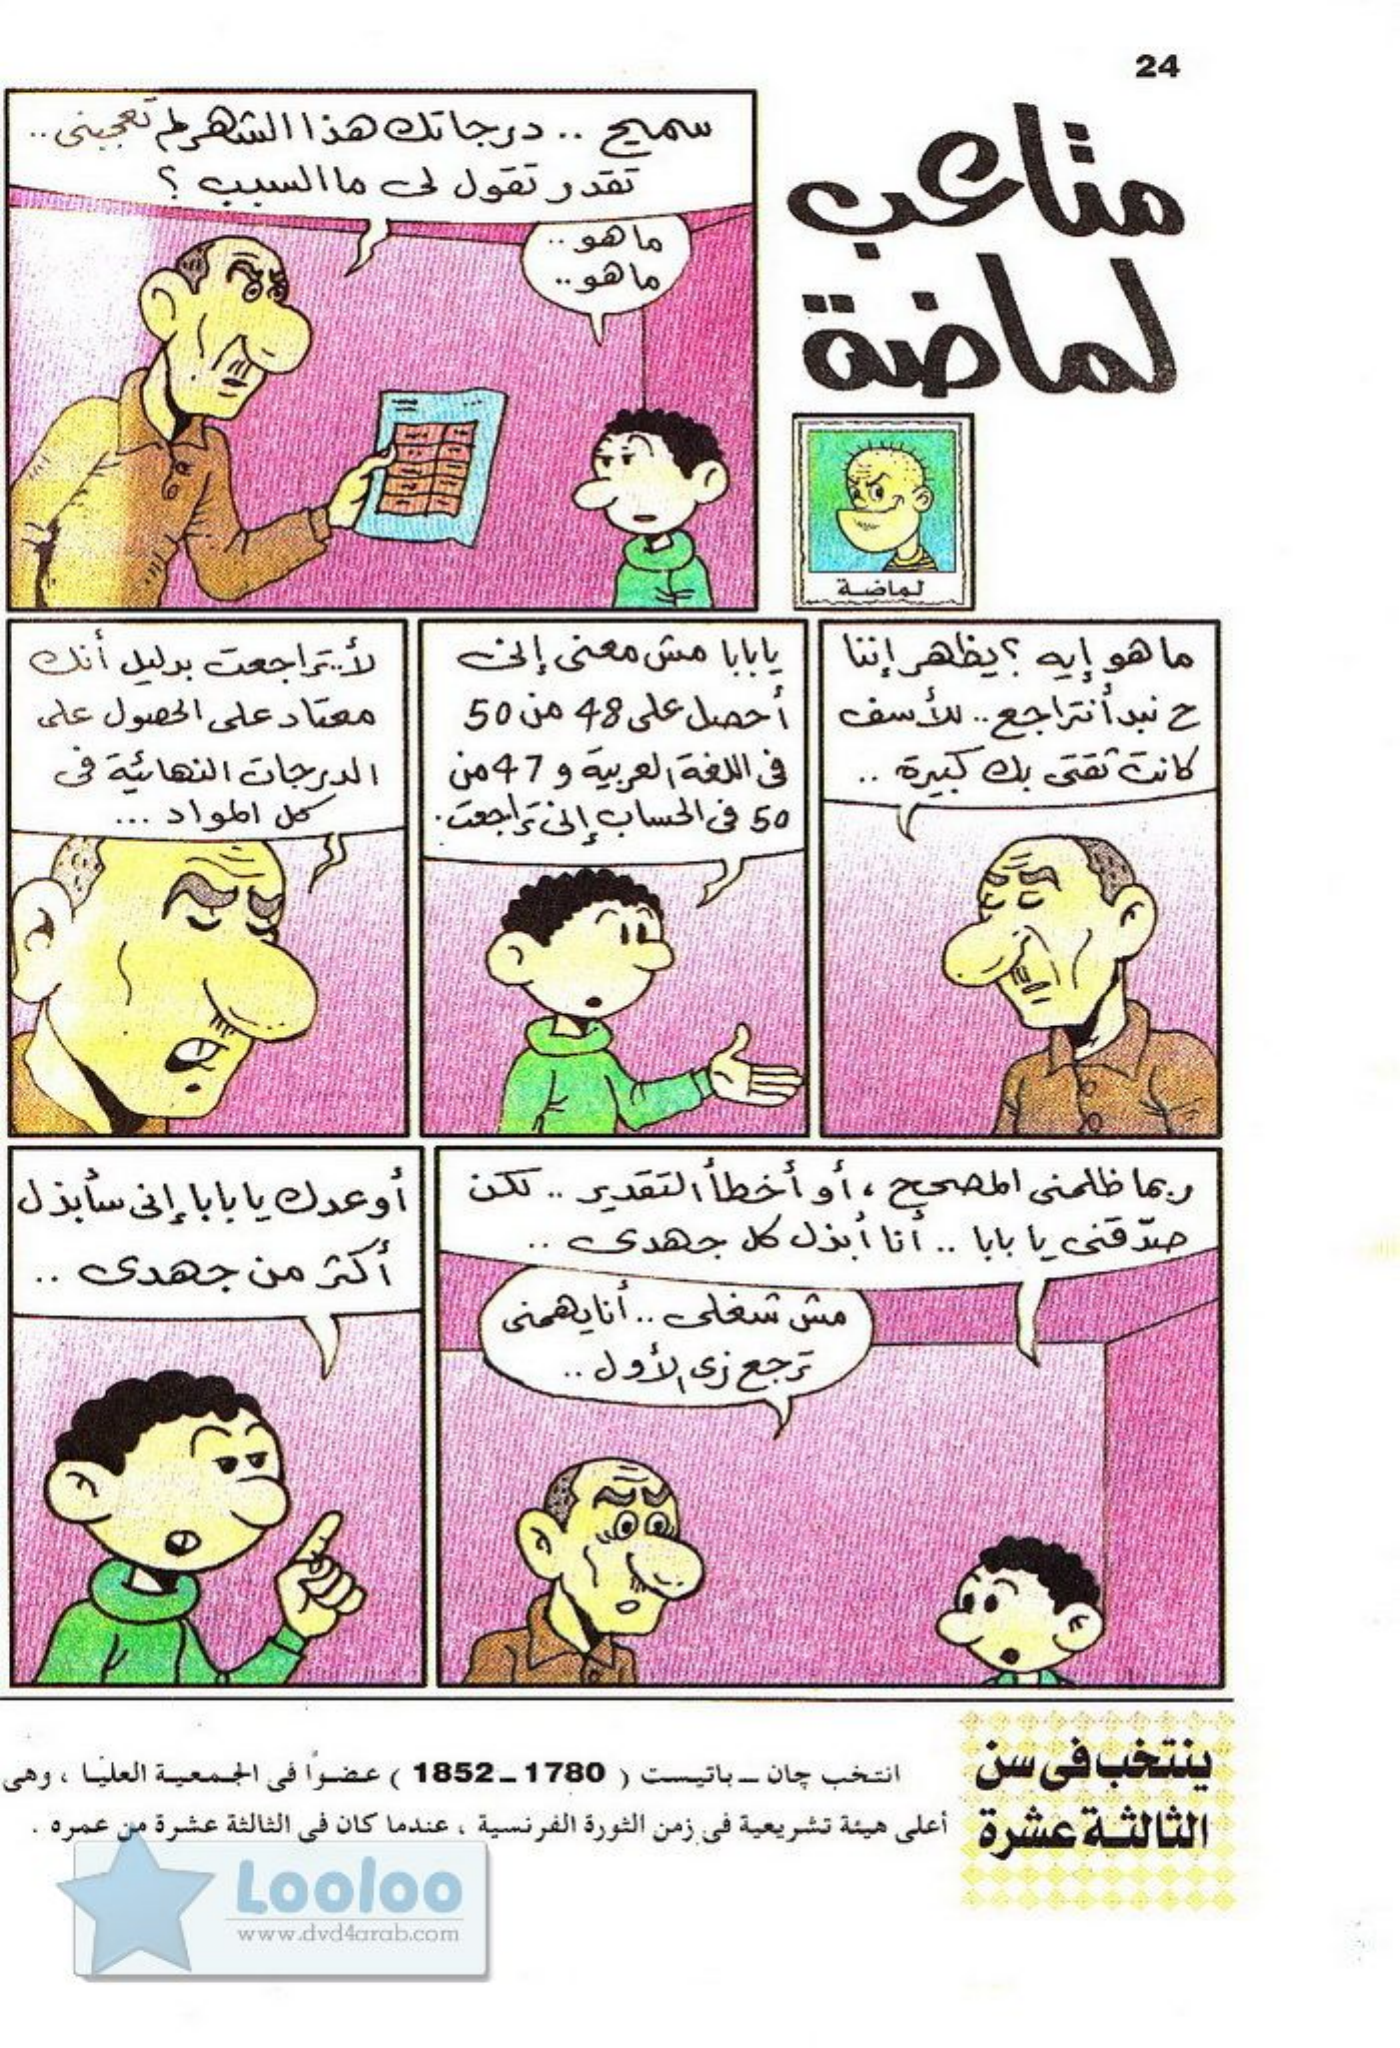 24
متاعب
لماضة
لماضة
سميح .. درجاتك هذا الشهر لم تعجبنى ..
تقدر تقول لى ما السبب ؟
ما هو ..
ما هو ..
ما هو إيه ؟ يظهر إننا
ح نبدأ نتراجع .. للأسف
كانت ثقتى بك كبيرة ..
يا بابا مش معنى إنى
أحصل على 48 من 50
فى اللغة العربية و 47 من
50 فى الحساب إنى تراجعت.
لأ.. تراجعت بدليل أنك
معتاد على الحصول على
الدرجات النهائية فى
كل المواد ...
ربما ظلمنى المصحح ، أو أخطأ التقدير .. لكن
صدّقنى يا بابا .. أنا أبذل كل جهدى ..
مش شغلى .. أنا يهمنى
ترجع زى الأول ..
أوعدك يا بابا إنى سأبذل
أكثر من جهدى ..
ينتخب فى سن
الثالثة عشرة
انتخب چان ـ باتيست ( 1780 ـ 1852 ) عضوًا فى الجمعية العليا ، وهى
أعلى هيئة تشريعية فى زمن الثورة الفرنسية ، عندما كان فى الثالثة عشرة من عمره .
Looloo
www.dvd4arab.com